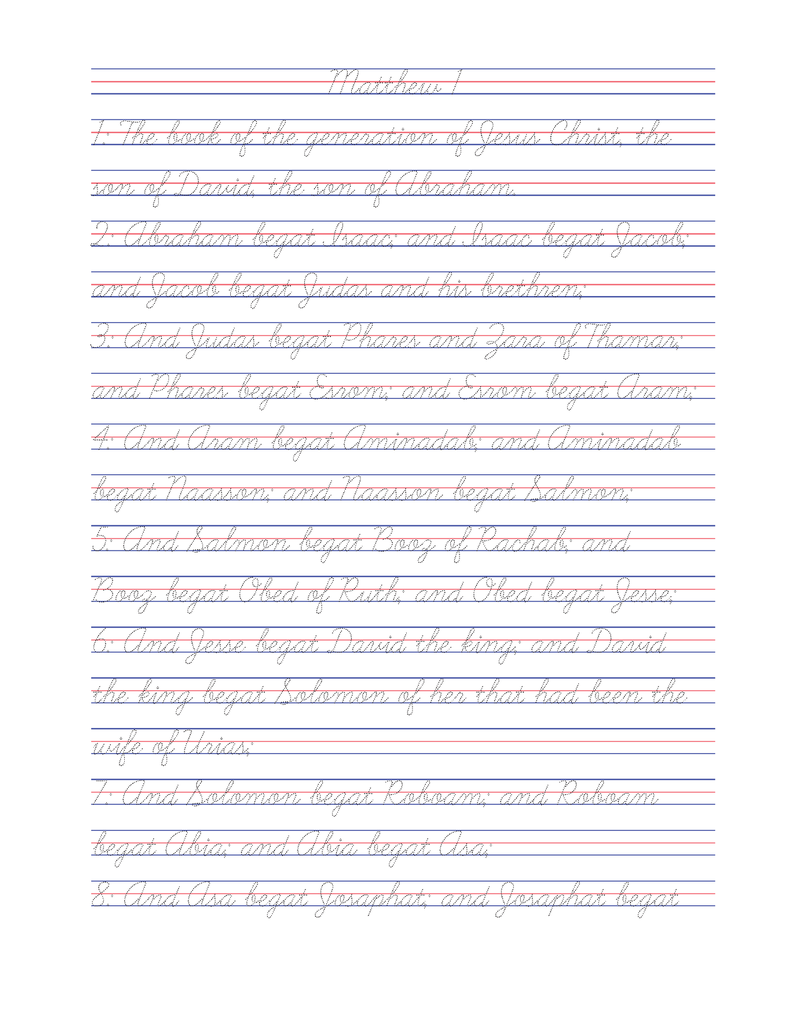 Matthew 1
1: The book of the generation of Jesus Christ, the
son of David, the son of Abraham.
2: Abraham begat Isaac; and Isaac begat Jacob;
and Jacob begat Judas and his brethren;
3: And Judas begat Phares and Zara of Thamar;
and Phares begat Esrom; and Esrom begat Aram;
4: And Aram begat Aminadab; and Aminadab
begat Naasson; and Naasson begat Salmon;
5: And Salmon begat Booz of Rachab; and
Booz begat Obed of Ruth; and Obed begat Jesse;
6: And Jesse begat David the king; and David
the king begat Solomon of her that had been the
wife of Urias;
7: And Solomon begat Roboam; and Roboam
begat Abia; and Abia begat Asa;
8: And Asa begat Josaphat; and Josaphat begat